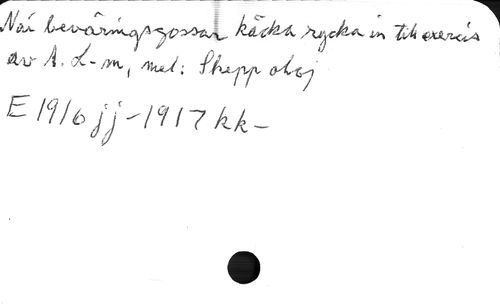 När beväringsgossar käcka rycka in till exercis
av A. L-m, mel: Skepp ohoj
E 1916 jj - 1917 kk -